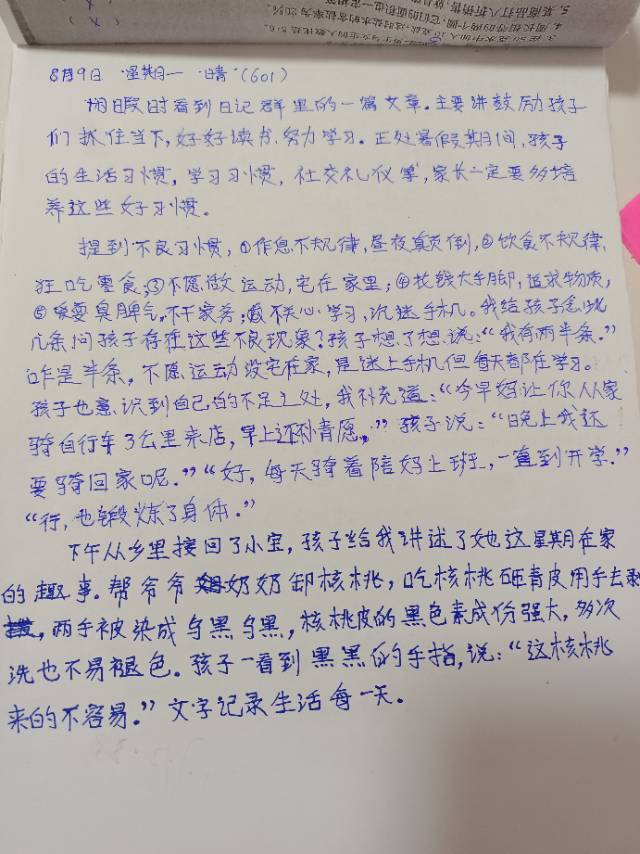 5. 某商品打八折销售,
4. 周长相等的两个圆,它们的面积也一定相等
8月9日 星期一 晴 (601)
相暇时看到日记群里的一篇文章。主要讲鼓励孩子
们抓住当下,好好读书,努力学习。正处暑假期间,孩子
的生活习惯,学习习惯,社交礼仪等,家长一定要多培
养这些好习惯。
提到不良习惯,①作息不规律,昼夜颠倒,②饮食不规律,
狂吃零食,③不愿做运动,宅在家里;④找钱大手脚,追求物质,
⑤爱耍臭脾气,不干家务;⑥不关心学习,沉迷手机。我给孩子念此
几条问孩子存在这些不良现象?孩子想了想说:“我有两半条。”
咋是半条,不愿运动没宅在家,是迷上手机但每天都在学习。
孩子也意识到自己的不足之处,我补充道:“今早妈让你从家
骑自行车3公里来店,早上还不情愿。”孩子说:“晚上我还
要骑回家呢。”“好,每天骑着陪妈上班,一直到开学。”
“行,也锻炼了身体。”
下午从乡里接回了小宝,孩子给我讲述了她这星期在家
的趣事。帮爷爷奶奶卸核桃,吃核桃砸青皮用手去剥
,两手被染成乌黑乌黑,核桃皮的黑色素成份强大,多次
洗也不易褪色。孩子一看到黑黑的手指,说:“这核桃
来的不容易。”文字记录生活每一天。